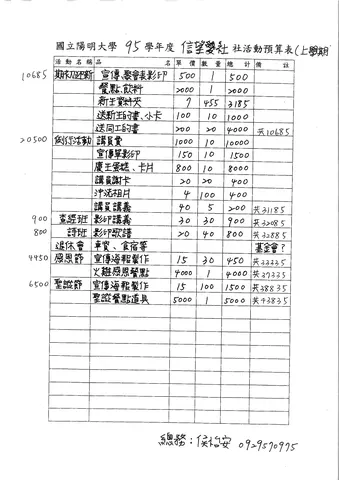 國立陽明大學 95 學年度 信望愛社 社活動預算表(上學期
活動名稱 品名 單價 數量 總計 備註
10685 期初迎新 宣傳、聚會表影印 500 1 500
餐點、飲料 2000 1 2000
新生資料夾 7 455 3185
送新生的書、小卡 100 10 1000
送同工的書 200 20 4000 共10685
20500 例行活動 講員費 1000 10 10000
宣傳單影印 150 10 1500
慶生蛋糕、卡片 800 10 8000
講員謝卡 20 20 400
沖洗相片 4 100 400
講員講義 40 5 200 共31185
900 查經班 影印講義 30 30 900 共32085
800 詩班 影印歌譜 20 40 800 共32885
退休會 車資、食宿等 基金會?
4450 感恩節 宣傳海報製作 15 30 450 共33335
火雞感恩餐點 4000 1 4000 共37335
6500 聖誕節 宣傳海報製作 15 100 1500 共38835
聖誕餐點道具 5000 1 5000 共43835
總務:侯怡安 0929570975